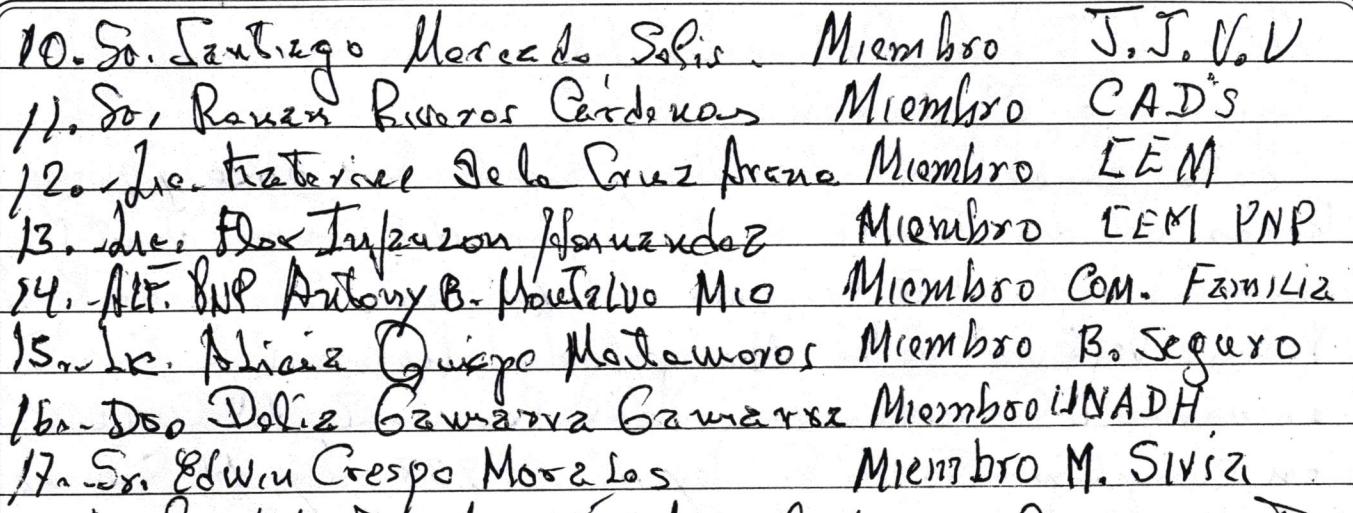 10. Sr. Santiago Mercado Solis. Miembro J.J.V.V
11. Sr. Renan Riveros Cárdenas Miembro CAD's
12.- Lic. Katerine De la Cruz Arana Miembro CEM
13. Lic. Flor Infanzon Hernandez Miembro CEM PNP
14.- ALF. PNP Antony B. Montalvo Mio Miembro Com. Familia
15.- Lic. Alicia Quispe Matamoros Miembro B. Seguro
16.- Dra Delia Gamarra Gamarra Miembro UNADH
17.- Sr. Edwin Crespo Morales Miembro M. Sivia